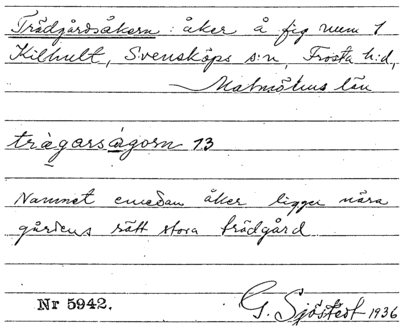 Trädgårdsåkern : åker å fig num 1
Kilhult, Svensköps s:n, Frosta h:d,
Malmöhus län
trägarsågorn 13
Namnet emedan åker ligger nära
gårdens rätt stora trädgård
Nr 5942.
G. Sjöstedt 1936